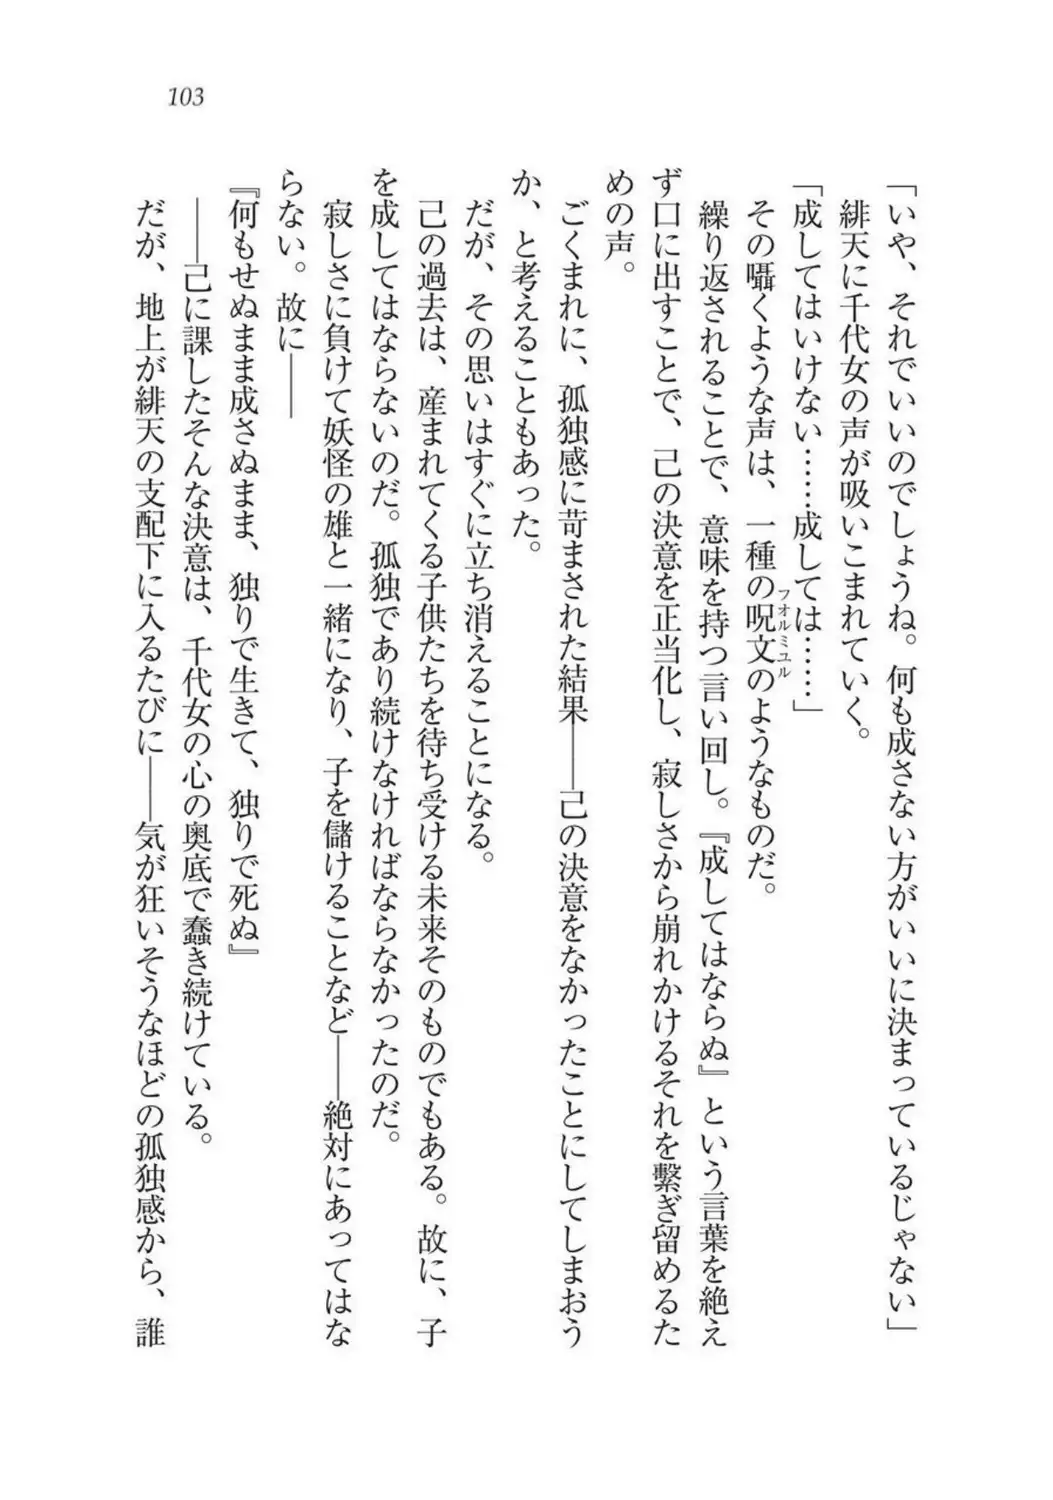 103
「いや、それでいいのでしょうね。何も成さない方がいいに決まっているじゃない」
緋天に千代女の声が吸いこまれていく。
「成してはいけない……成しては……」
その囁くような声は、一種の呪文のようなものだ。
フオルミユル
繰り返されることで、意味を持つ言い回し。『成してはならぬ』という言葉を絶え
ず口に出すことで、己の決意を正当化し、寂しさから崩れかけるそれを繋ぎ留めるた
めの声。
ごくまれに、孤独感に苛まされた結果――己の決意をなかったことにしてしまおう
か、と考えることもあった。
だが、その思いはすぐに立ち消えることになる。
己の過去は、産まれてくる子供たちを待ち受ける未来そのものでもある。故に、子
を成してはならないのだ。孤独であり続けなければならなかったのだ。
寂しさに負けて妖怪の雄と一緒になり、子を儲けることなど――絶対にあってはな
らない。故に――
『何もせぬまま成さぬまま、独りで生きて、独りで死ぬ』
――己に課したそんな決意は、千代女の心の奥底で蠢き続けている。
だが、地上が緋天の支配下に入るたびに――気が狂いそうなほどの孤独感から、誰